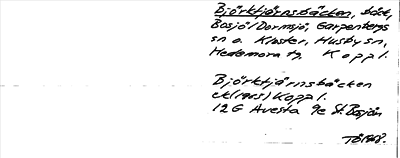 Björktjärnsbäcken, bäck,
Bosjö/Dormsjö, Garpenbergs
sn o. Kloster, Husby sn,
Hedemora tg, Koppl.
Björktjärnsbäcken
ek(1915) Koppl.
12G Avesta 9e St. Bosjön